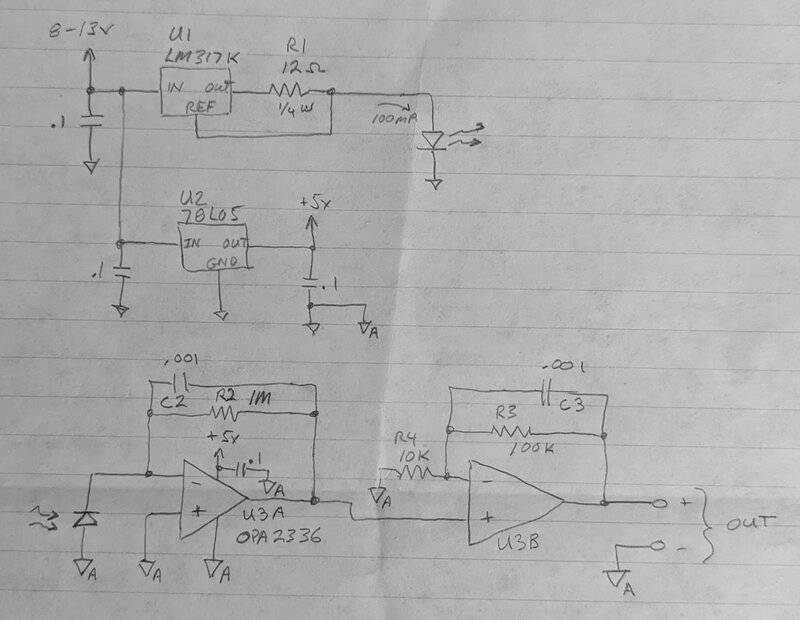 8-13V
U1
LM317K
IN OUT
REF
R1
12Ω
1/4 W
100MA
.1
U2
78L05
IN OUT
GND
+5V
.1
.1
A
.001
C2
R2 1M
+5V
.1
A
-
+
U3A
OPA2336
A
A
A
R4
10K
A
.001
C3
R3
100K
-
+
U3B
+
-
OUT
A